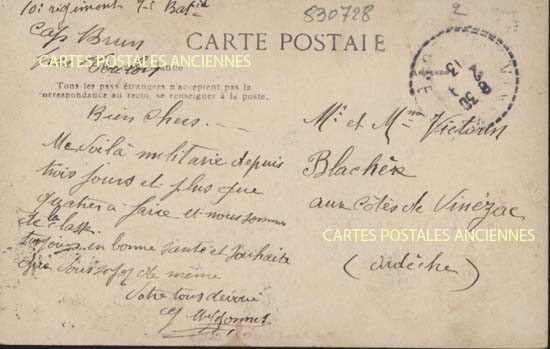 10e régiment
830728
2
Cap Brun
CARTE POSTALE
CARTES POSTALES ANCIENNES
Tous les pays étrangers n'acceptent pas la
correspondance au recto, se renseigner à la poste.
Bien Chers. —
Me voilà militaire depuis
trois jours et plus que
quatre a faire et nous sommes
de la classe
Toujours en bonne santé et souhaite
que vous soyez de même
Votre tous dévoué
8 30
13
Mr et Mme Victorin
Blachère
aux Côtes de Vinézac
CARTES POSTALES ANCIENNES
(Ardèche)